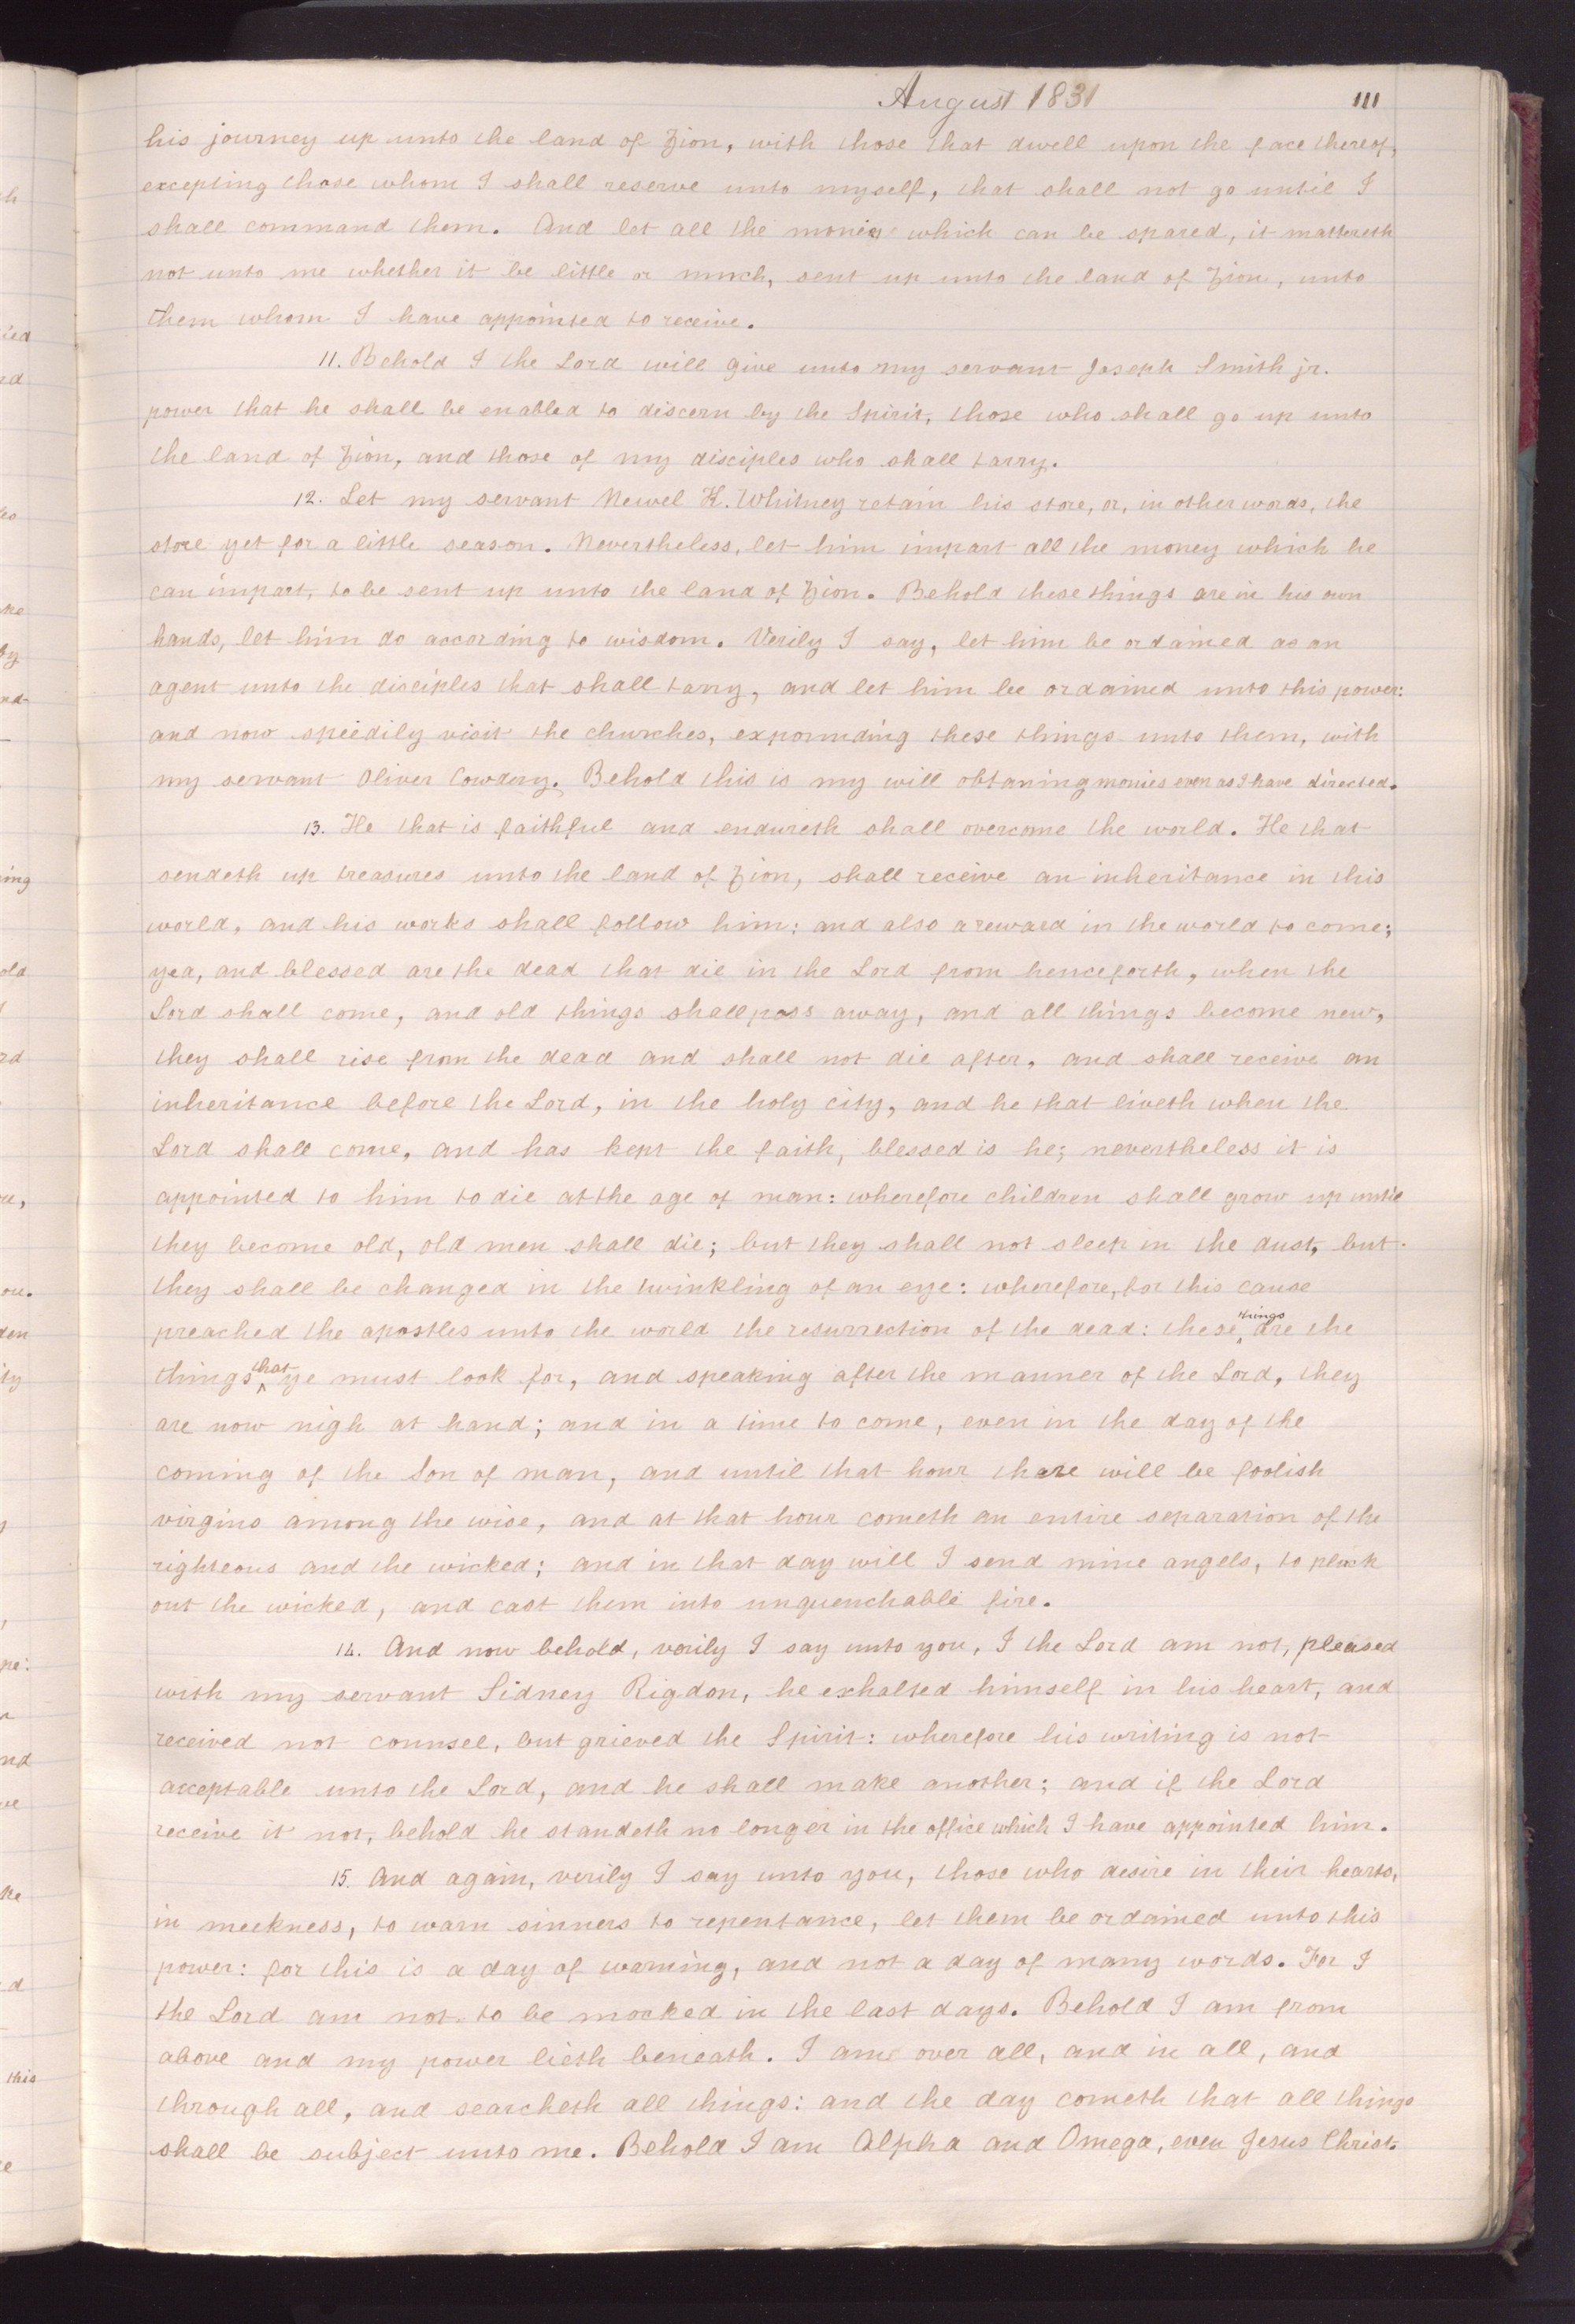 August 1831
111
his journey up unto the land of Zion, with those that dwell upon the face thereof,
excepting those whom I shall reserve unto myself, that shall not go until I
shall command them. And let all the monies which can be spared, it mattereth
not unto me whether it be little or much, sent up unto the land of Zion, unto
them whom I have appointed to receive.
11. Behold I the Lord will give unto my servant Joseph Smith jr.
power that he shall be enabled to discern by the Spirit, those who shall go up unto
the land of Zion, and those of my disciples who shall tarry.
12. Let my servant Newel K. Whitney retain his store, or, in other words, the
store yet for a little season. Nevertheless, let him impart all the money which he
can impart, to be sent up unto the land of Zion. Behold these things are in his own
hands, let him do according to wisdom. Verily I say, let him be ordained as an
agent unto the disciples that shall tarry, and let him be ordained unto this power:
and now speedily visit the churches, expounding these things unto them, with
my servant Oliver Cowdery. Behold this is my will obtaning monies even as I have directed.
13. He that is faithful and endureth shall overcome the world. He that
sendeth up treasures unto the land of Zion, shall receive an inheritance in this
world, and his works shall follow him: and also a reward in the world to come;
yea, and blessed are the dead that die in the Lord from henceforth, when the
Lord shall come, and old things shall pass away, and all things become new,
they shall rise from the dead and shall not die after, and shall receive an
inheritance before the Lord, in the holy city, and he that liveth when the
Lord shall come, and has kept the faith, blessed is he; nevertheless it is
appointed to him to die at the age of man: wherefore children shall grow up until
they become old, old men shall die; but they shall not sleep in the dust, but
they shall be changed in the twinkling of an eye: wherefore, for this cause
preached the apostles unto the world the resurrection of the dead: these things are the
things that ye must look for, and speaking after the manner of the Lord, they
are now nigh at hand; and in a time to come, even in the day of the
coming of the Son of man, and until that hour there will be foolish
virgins among the wise, and at that hour cometh an entire separation of the
righteous and the wicked; and in that day will I send mine angels, to pluck
out the wicked, and cast them into unquenchable fire.
14. And now behold, verily I say unto you, I the Lord am not, pleased
with my servant Sidney Rigdon, he exhalted himself in his heart, and
received not counsel, but grieved the Spirit: wherefore his writing is not
acceptable unto the Lord, and he shall make another; and if the Lord
receive it not, behold he standeth no longer in the office which I have appointed him.
15. And again, verily I say unto you, those who desire in their hearts,
in meekness, to warn sinners to repentance, let them be ordained unto this
power: for this is a day of warning, and not a day of many words. For I
the Lord am not to be mocked in the last days. Behold I am from
above and my power lieth beneath. I am over all, and in all, and
through all, and searcheth all things: and the day cometh that all things
shall be subject unto me. Behold I am Alpha and Omega, even Jesus Christ.